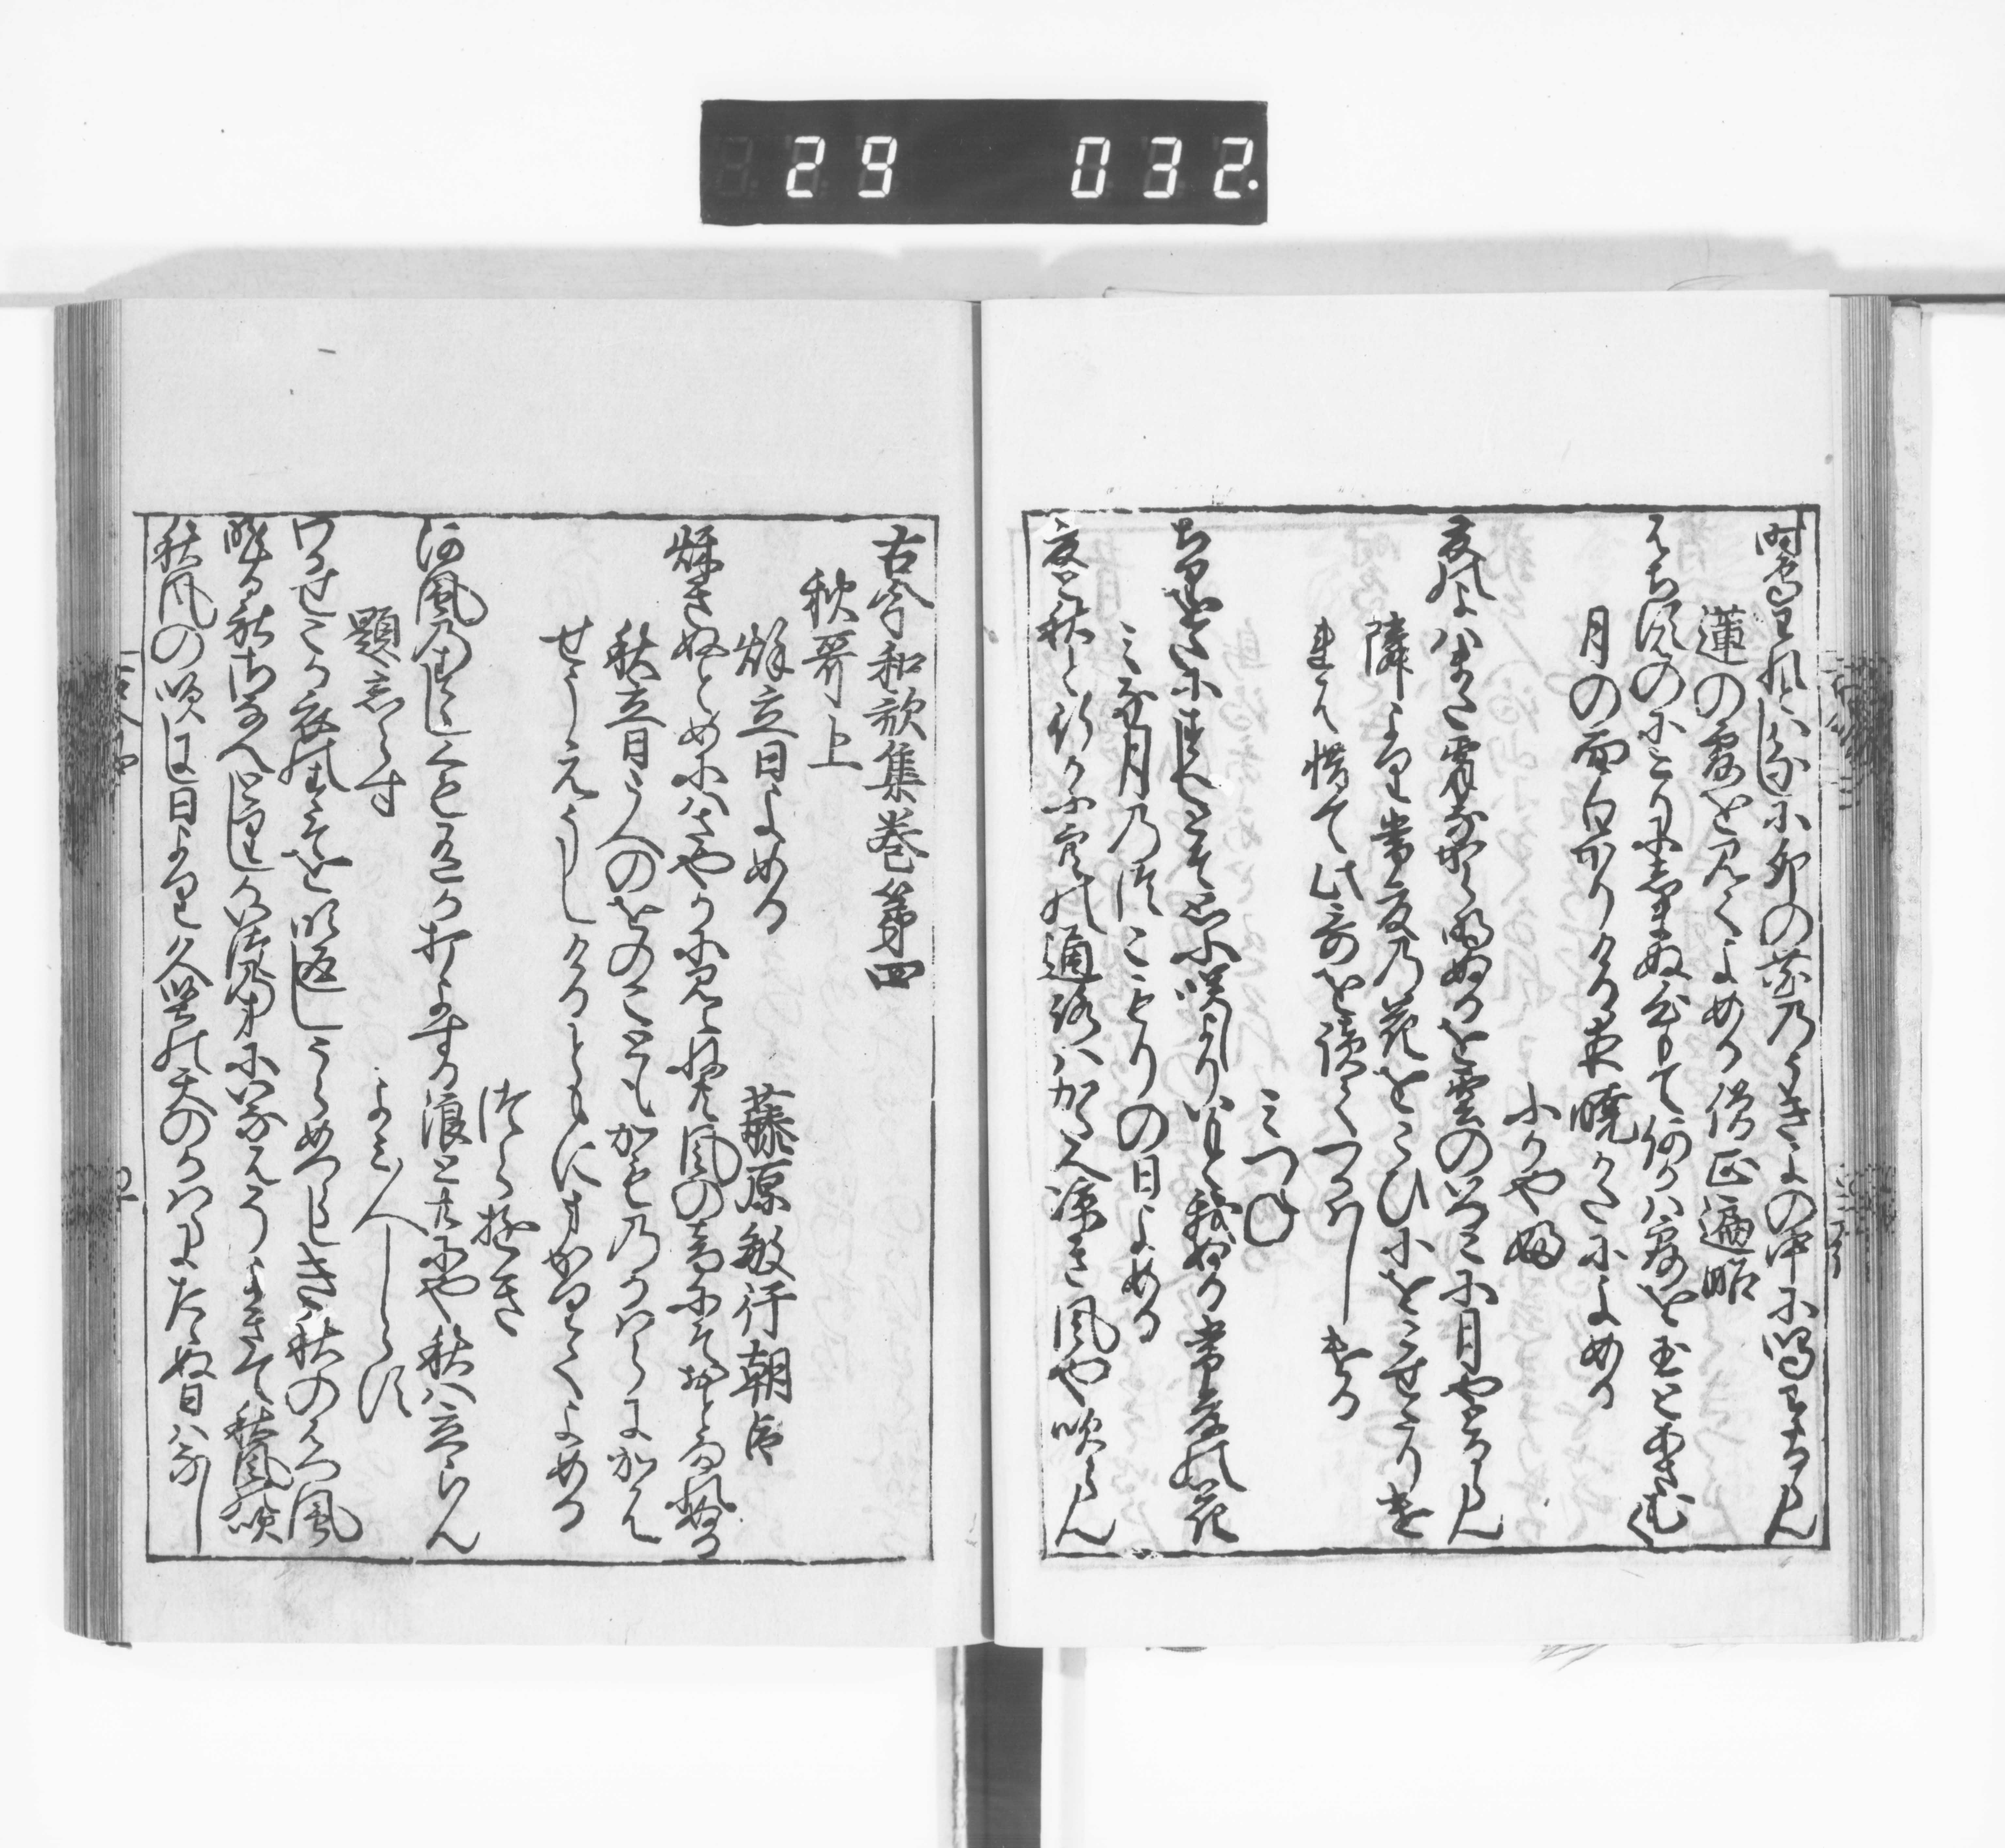 29 032.
時鳥我とハなしに卯の花乃うきよの中に鳴わたるらん
蓮の露を見てよめる 僧正遍昭
はち須のにこりにしまぬ心もて何かハ露を玉とあさむく
月の面白かりける夜暁かたによめる
ふかやふ
夏の夜ハまた宵なから明ぬるを雲のいつこに月やとるらん
隣より常夏乃花をこひにをこせたりけ
れは惜て此哥を読てつかハしける
みつね
ちりをたにすへしとそ思ふ咲しよりいもと我ぬる常夏の花
みな月乃つこもりの日よめる
夏と秋と行かふ空の通路ハかたへ凉き風や吹らん
古今和歌集巻第四
秋哥上
秋立日よめる 藤原敏行朝臣
秋きぬとめにハさやかに見えねとも風の音にそおとろかれぬる
秋立日うへのをのこともかも乃かハらにかは
せうえうしけるともにまかりてよめる
つらゆき
河風乃すゝしくも有か打よする浪とともにや秋ハ立らん
題しらす
よみ人しらす
わかせこか衣のすそを吹返しうらめつらしき秋のはつ風
昨日こそさなへとりしかいつのまにいなはそよきて秋風の吹
秋風の吹にし日より久堅の天のかハらにたゝぬ日ハなし